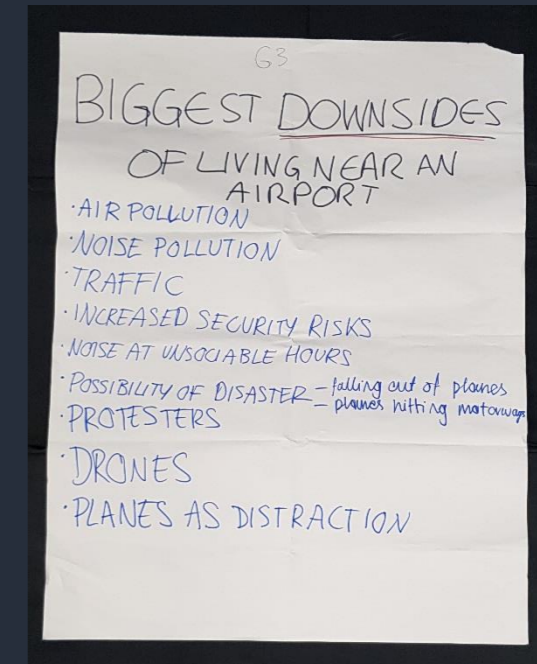 G3
BIGGEST DOWNSIDES
OF LIVING NEAR AN
AIRPORT
·AIR POLLUTION
·NOISE POLLUTION
·TRAFFIC
·INCREASED SECURITY RISKS
·NOISE AT UNSOCIABLE HOURS
·POSSIBILITY OF DISASTER – falling out of planes
– planes hitting motorways
·PROTESTERS
·DRONES
·PLANES AS DISTRACTION